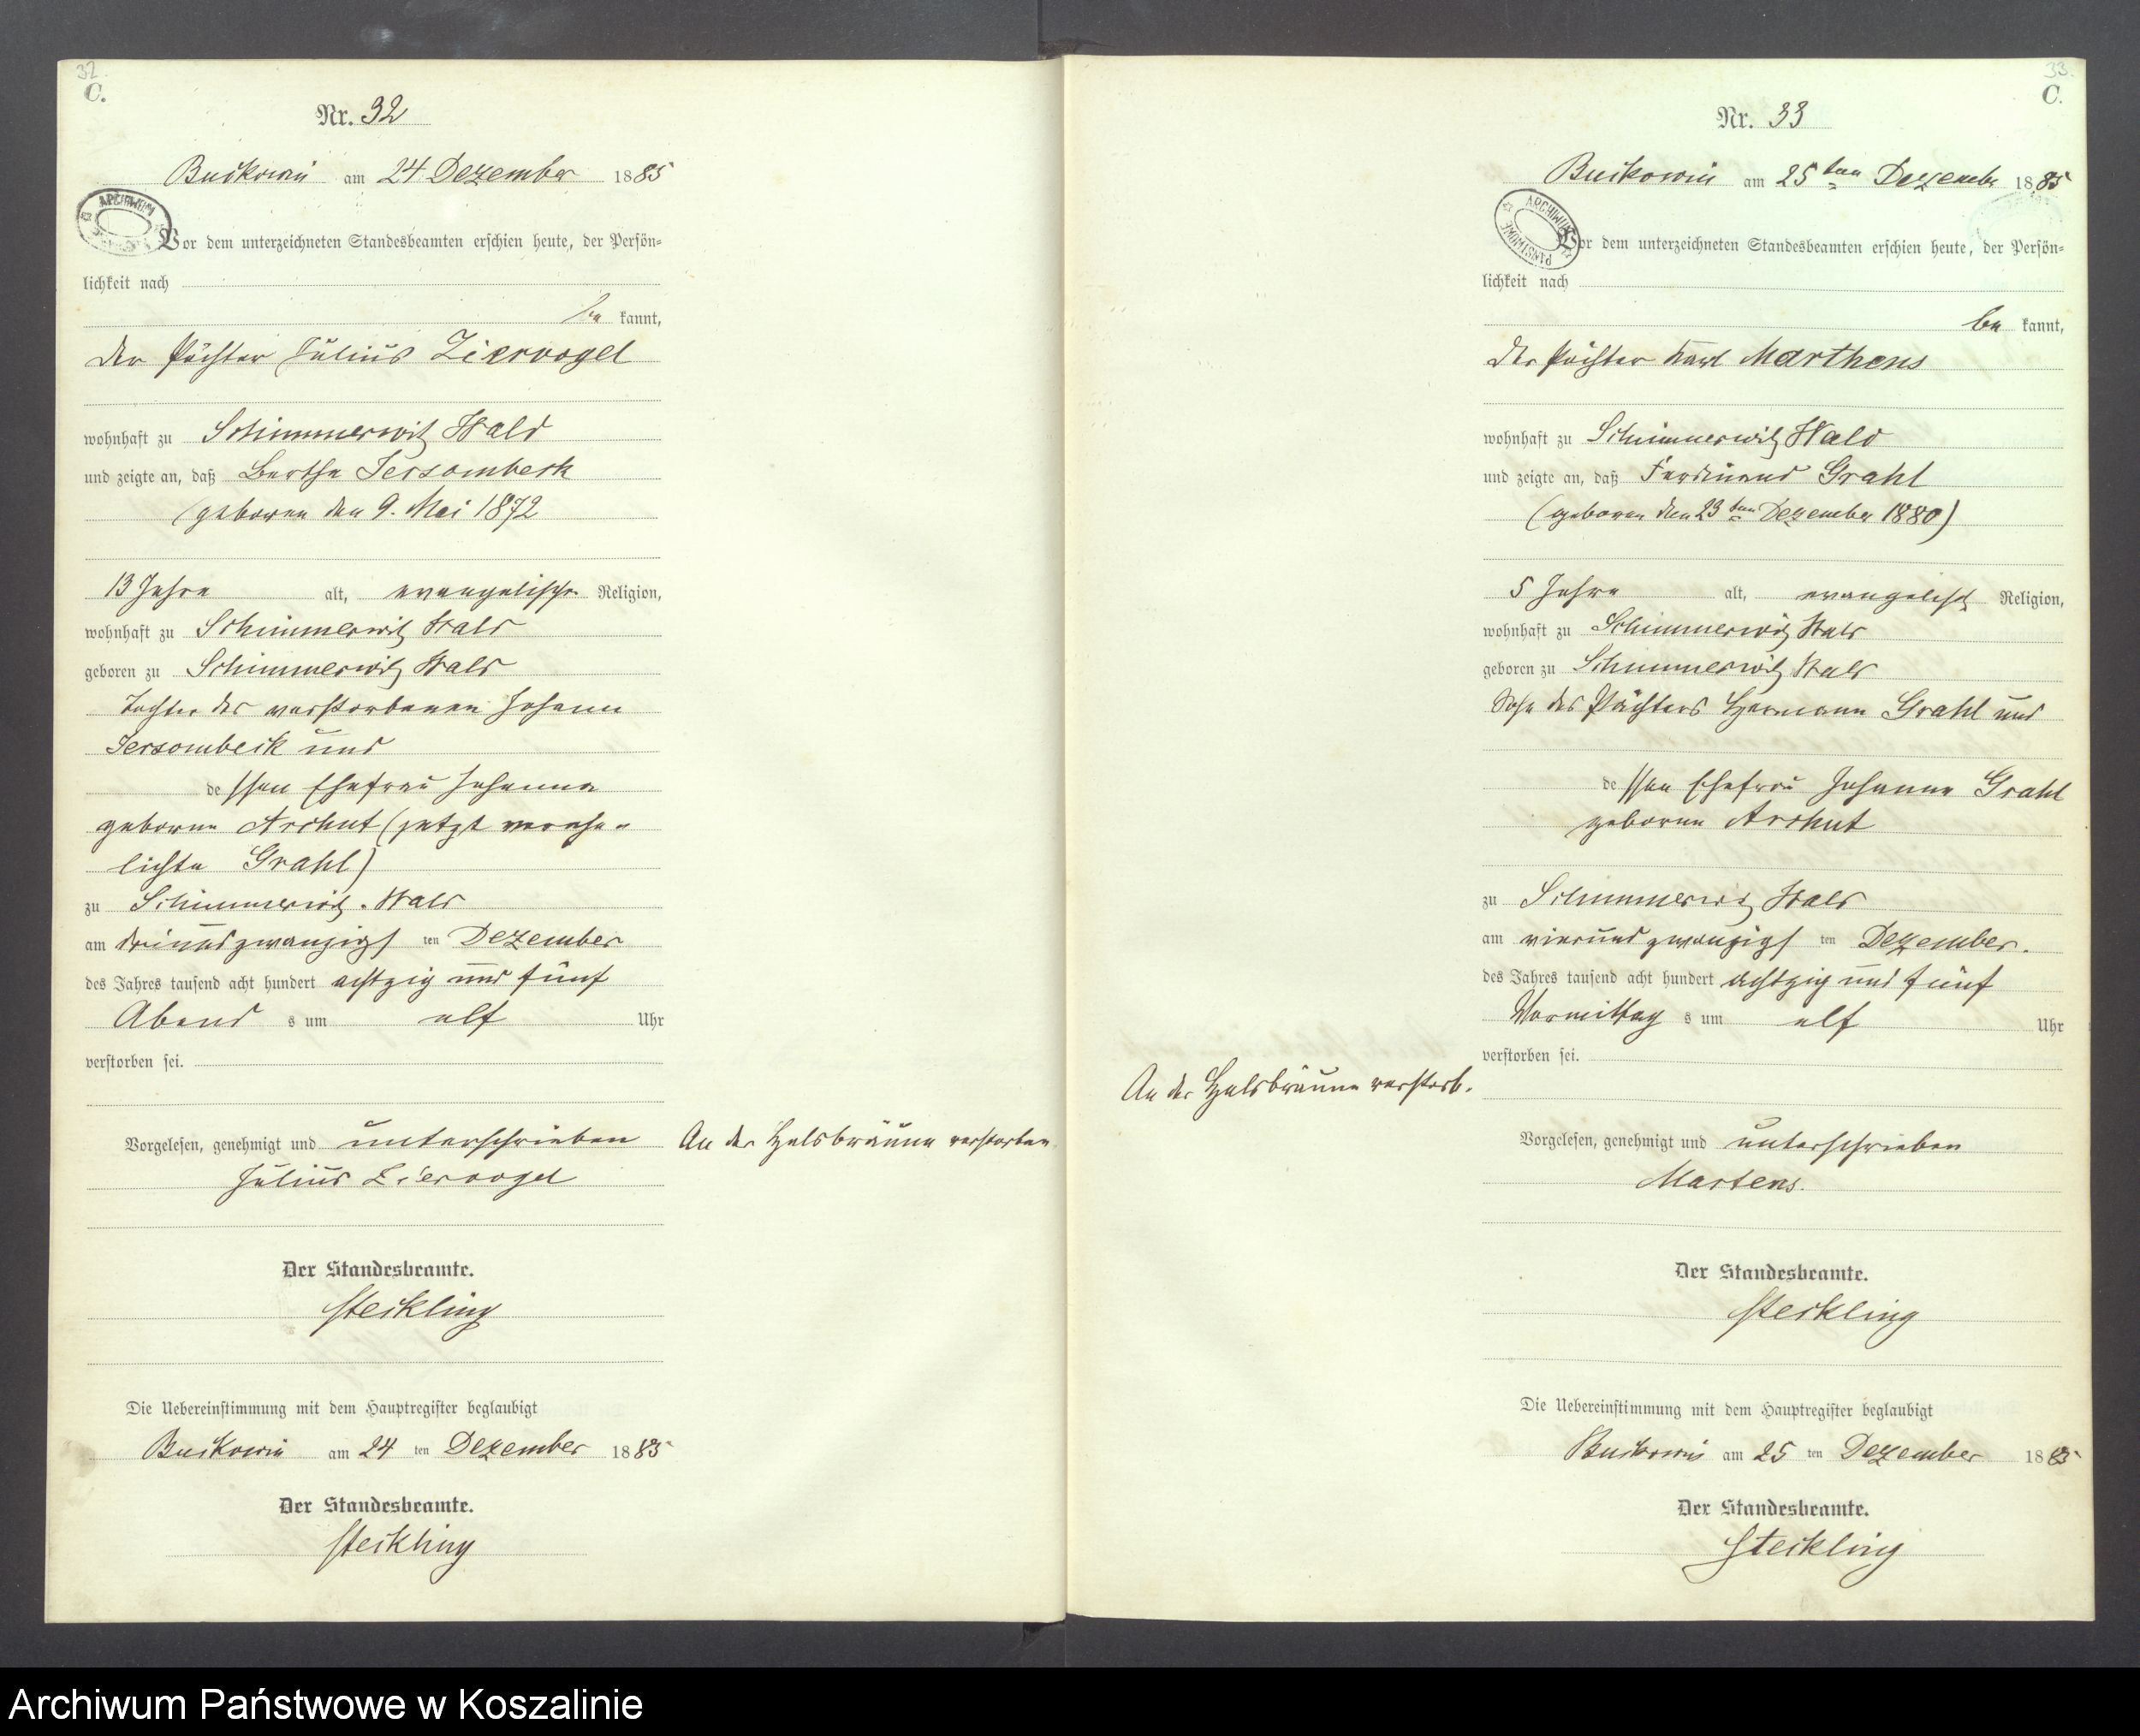 32.
C.
Nr. 32
Buckowin am 24 Dezember 1885
ARCHIWUM
Vor dem unterzeichneten Standesbeamten erschien heute, der Persön-
lichkeit nach
be kannt,
der Pächter Julius Ziervogel
wohnhaft zu Schimmerwitz Wald
und zeigte an, daß Bertha Jersombeck
(geboren den 9. Mai 1872
13 Jahre alt, evangelischer Religion,
wohnhaft zu Schimmerwitz Wald
geboren zu Schimmerwitz Wald
Tochter des verstorbenen Johann
Jersombeck und
de ssen Ehefrau Johanna
geborne Archut (jetzt verehe-
lichte Grahl)
zu Schimmerwitz. Wald
am dreiundzwanzigs ten Dezember
des Jahres tausend acht hundert achtzig und fünf
Abend s um elf Uhr
verstorben sei.
Vorgelesen, genehmigt und unterschrieben
An der Halsbräune verstorben.
Julius Ziervogel
Der Standesbeamte.
Steckling
Die Uebereinstimmung mit dem Hauptregister beglaubigt
Buckowin am 24 ten Dezember 1885
Der Standesbeamte.
Steckling
33.
C.
Nr. 33
Buckowin am 25ten Dezembr 1885
ARCHIWUM PAŃSTWOWE
Vor dem unterzeichneten Standesbeamten erschien heute, der Persön-
lichkeit nach
be kannt,
der Pächter Karl Marthens
wohnhaft zu Schimmerwitz Wald
und zeigte an, daß Ferdinand Grahl
(geboren den 23ten Dezember 1880)
5 Jahre alt, evangelisch Religion,
wohnhaft zu Schimmerwitz Wald
geboren zu Schimmerwitz Wald
Sohn des Pächters Hermann Grahl und
de ssen Ehefrau Johanna Grahl
geborne Archut
zu Schimmerwitz Wald
am vierundzwanzigs ten Dezember.
des Jahres tausend acht hundert achtzig und fünf
Vormittag s um elf Uhr
verstorben sei.
An der Halsbräune verstorb.
Vorgelesen, genehmigt und unterschrieben
Martens.
Der Standesbeamte.
Steckling
Die Uebereinstimmung mit dem Hauptregister beglaubigt
Buckowin am 25 ten Dezember 1885
Der Standesbeamte.
Steckling
Archiwum Państwowe w Koszalinie